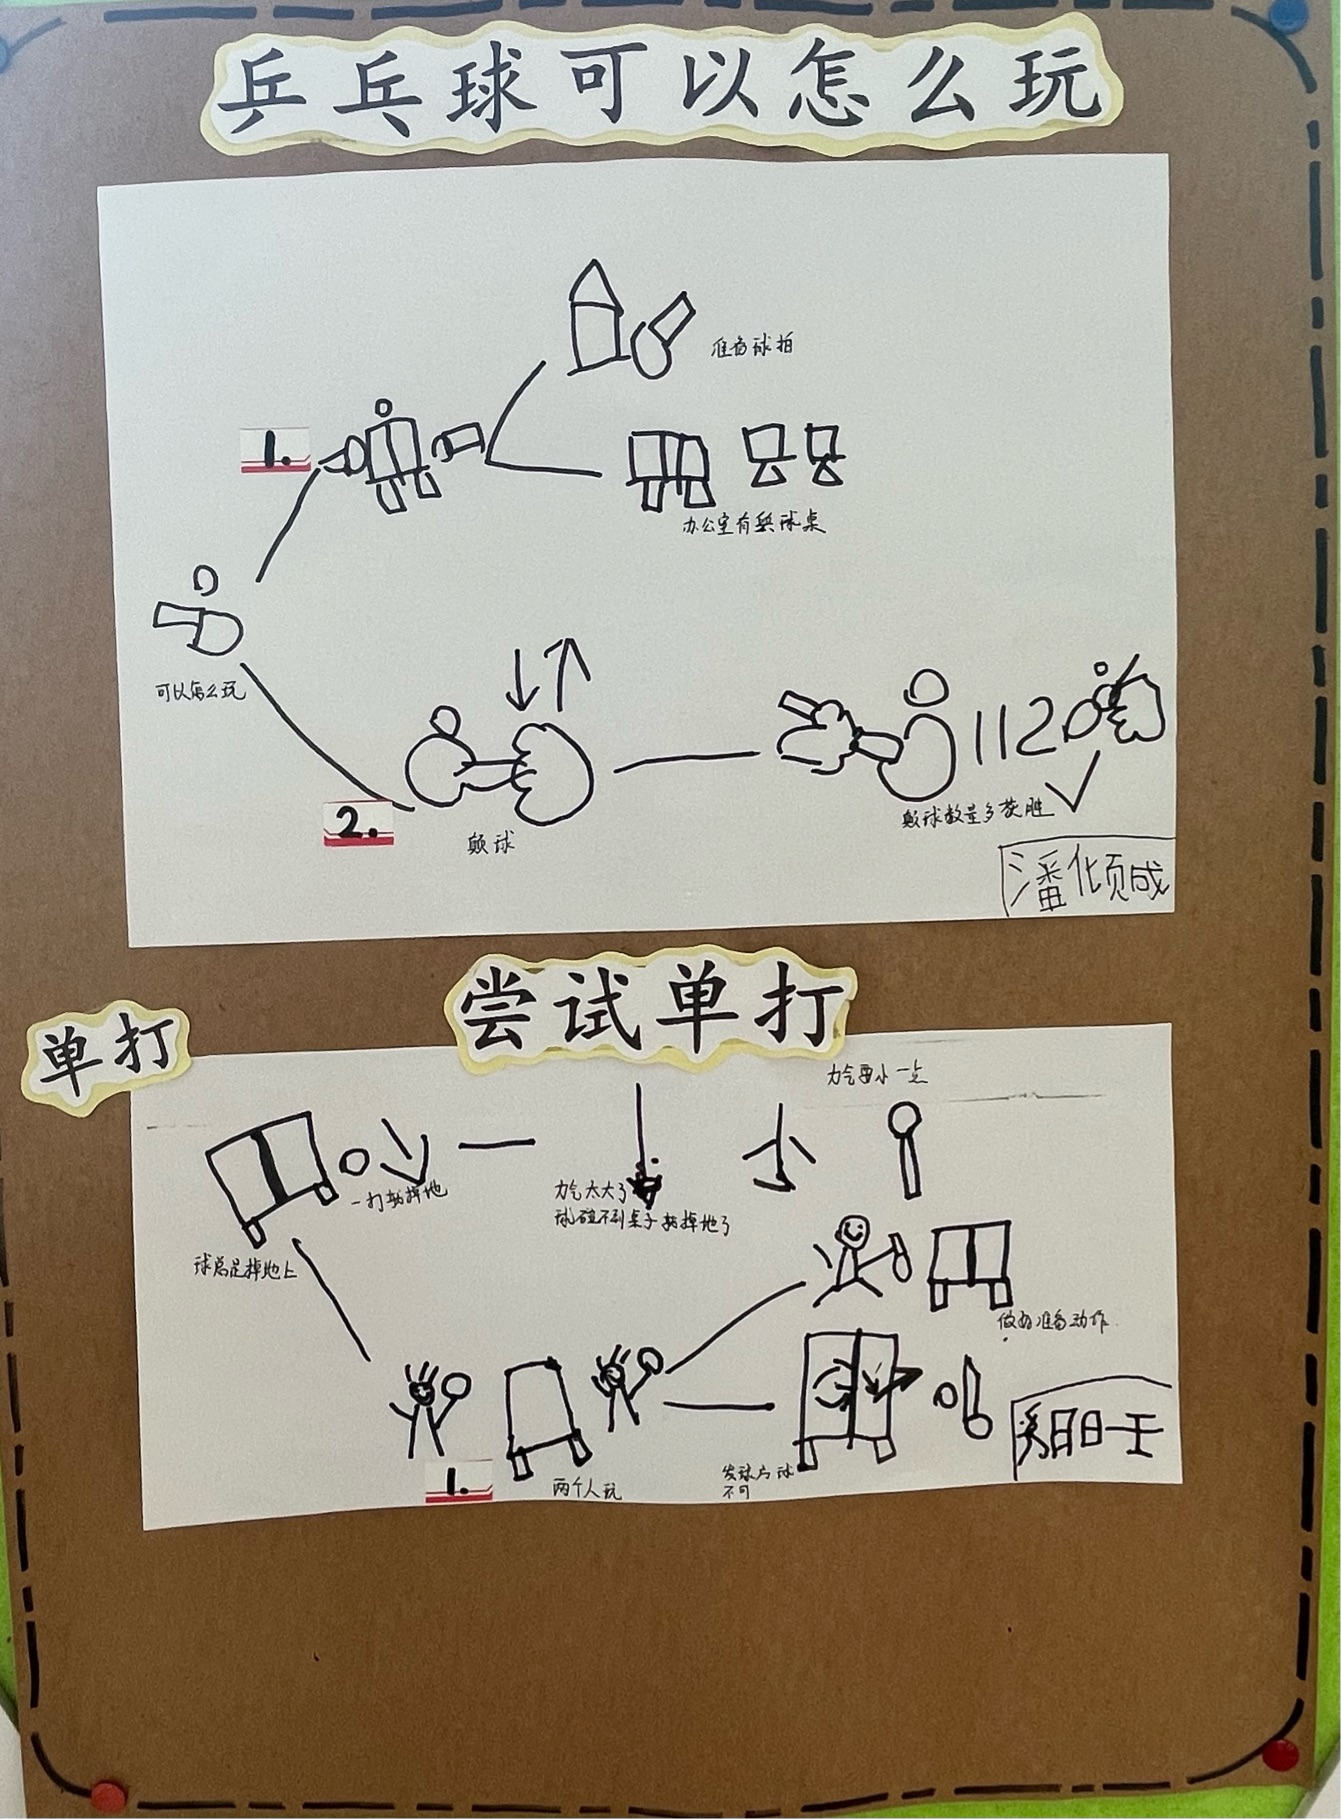 乒乓球可以怎么玩
准备球拍
1.
办公室有乒乓球桌
可以怎么玩
112
2.
颠球
颠球数量多获胜
潘倾成
尝试单打
单打
力气要小一点
一打就掉地
力气太大了
球碰不到桌子就掉地了
球总是掉地上
做好准备动作
1.
两个人玩
发球方球
不可